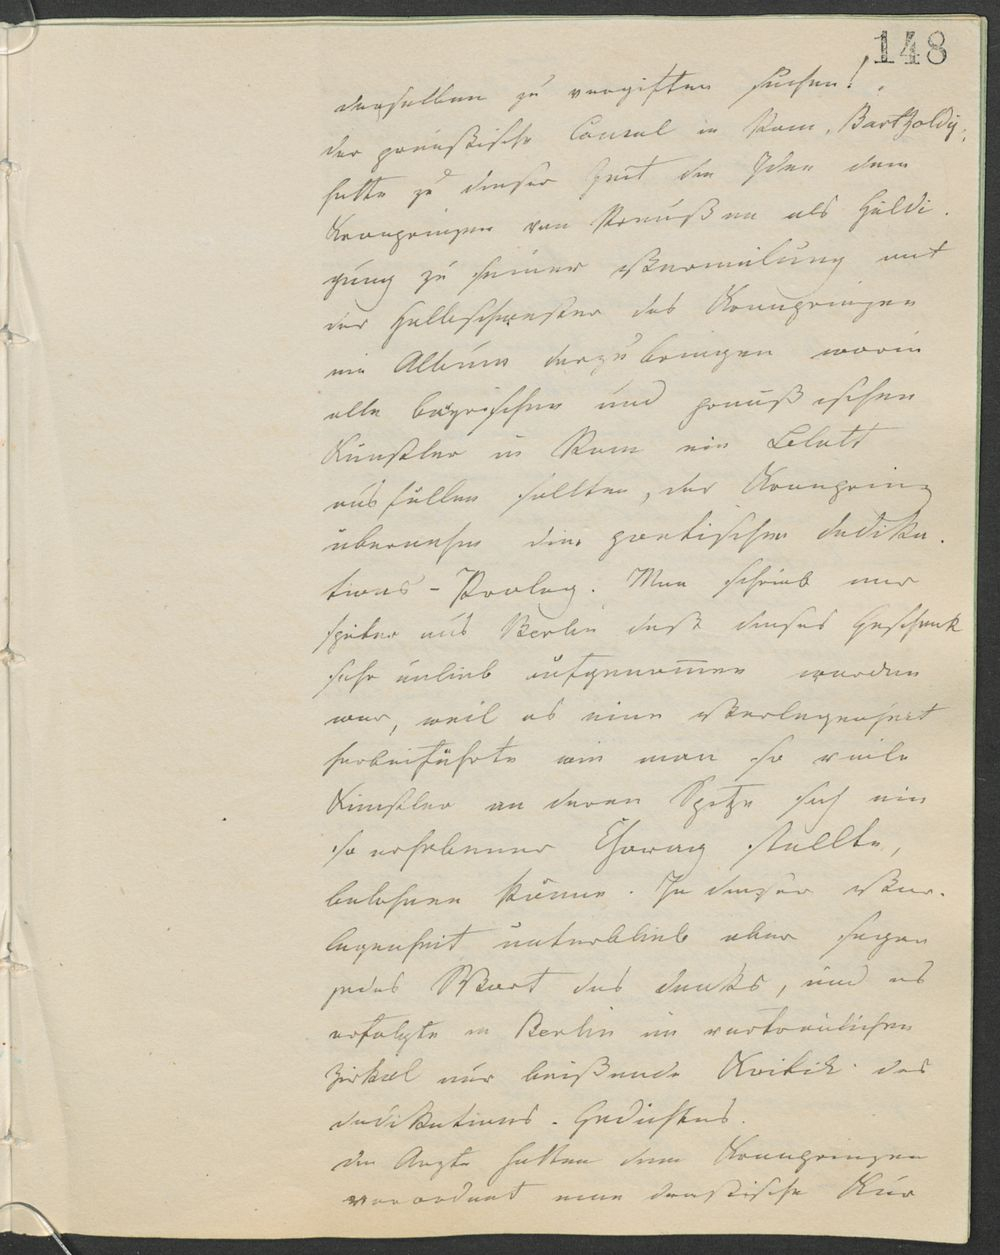 148
derselben zu vergiften suchen!
der preußische Consul in Rom, Bartholdy,
hatte zu dieser Zeit die Idee dem
Kronprinzen von Preußen als Huldi-
gung zu seiner Vermälung mit
der Halbschwester des Kronprinzen
ein Album darzubringen worin
alle bayrischen und preußischen
Künstler in Rom ein Blatt
ausfüllen sollten, der Kronprinz
übernahm den poetischen Dedika-
tions-Prolog. Man schrieb mir
später aus Berlin daß dieses Geschenk
sehr unlieb aufgenommen worden
war, weil es eine Verlegenheit
herbeiführte wie man so viele
Künstler an deren Spitze sich ein
so erhabener Chorag stellte,
belohnen könne. In dieser Ver-
legenheit unterblieb aber sogar
jedes Wort des Danks, und es
erfolgte in Berlin im vertraulichen
Zirkel nur beißende Kritik des
Dedikations-Gedichtes.
Die Ärzte hatten dem Kronprinzen
verordnet eine drastische Kur